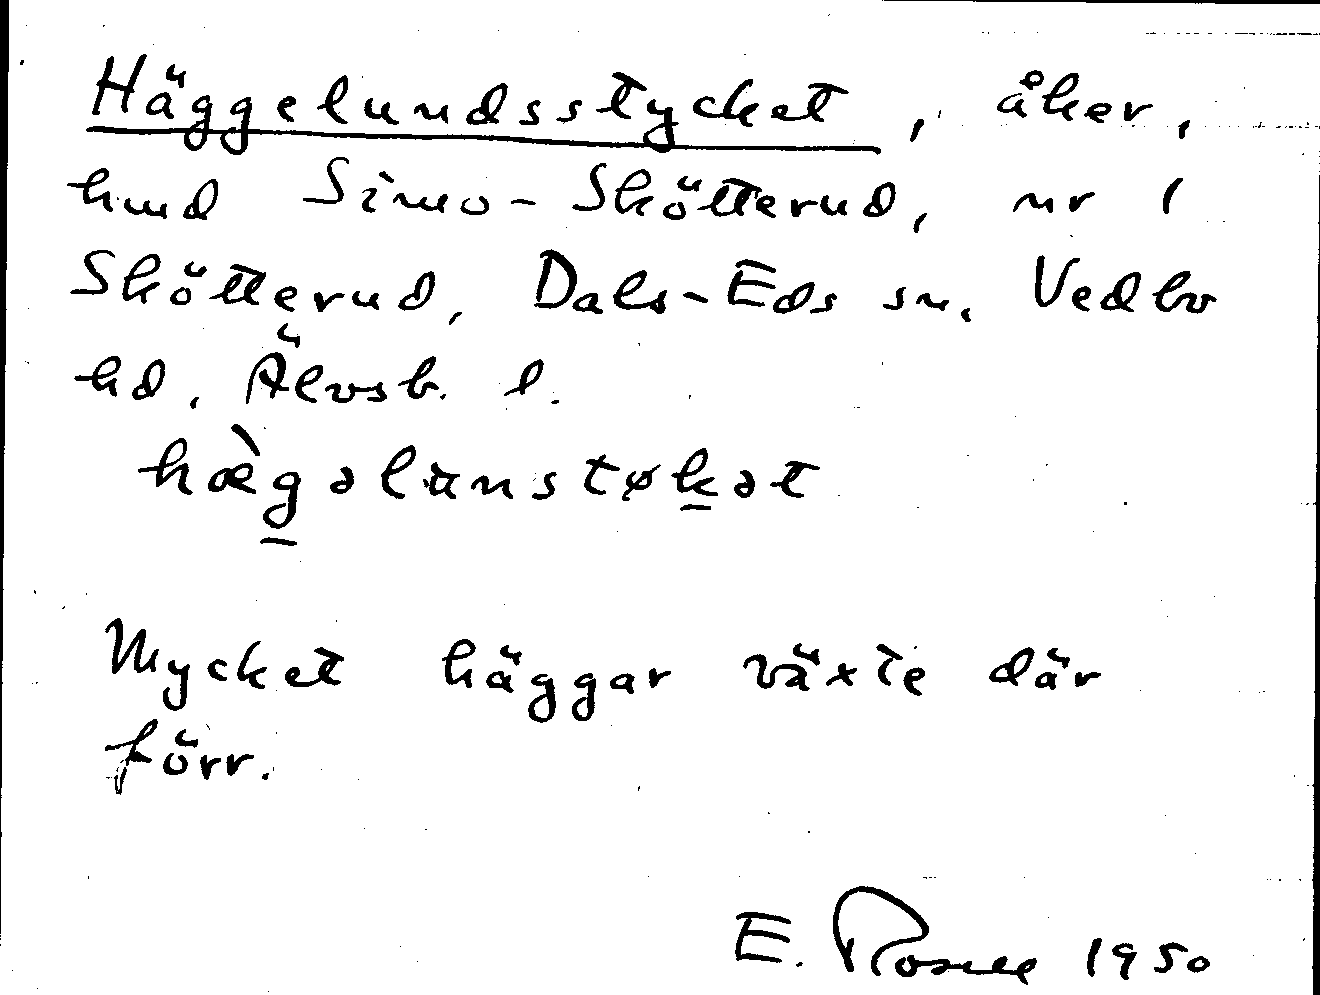 Häggelundsstycket, åker,
hmd Simo-Skötterud, nr 1
Skötterud, Dals-Eds sn. Vedbo
hd, Älvsb. l.
hæ̀gəlùnstøkət
Mycket häggar växte där
förr.
E. Rosell 1950